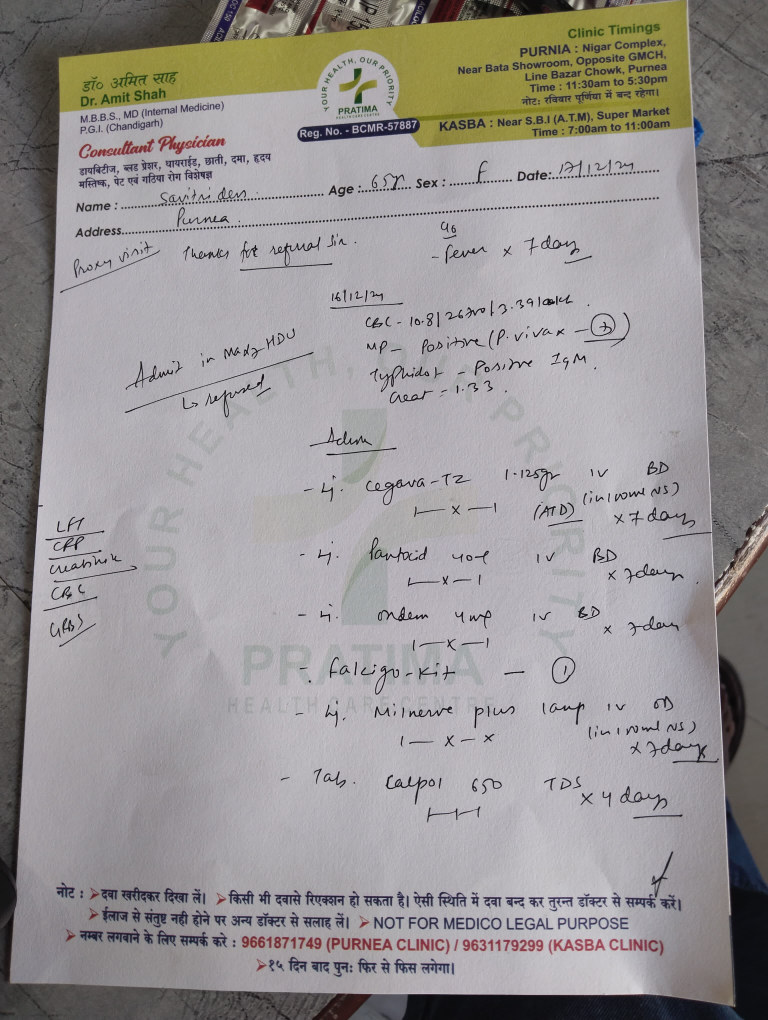 डॉ० अमित साह
Dr. Amit Shah
M.B.B.S., MD (Internal Medicine)
P.G.I. (Chandigarh)
Consultant Physician
डायबिटीज, ब्लड प्रेशर, थायराईड, छाती, दमा, हृदय
मस्तिष्क, पेट एवं गठिया रोग विशेषज्ञ
YOUR HEALTH, OUR PRIORITY
PRATIMA
HEALTH CARE CENTRE
Reg. No. - BCMR-57887
Clinic Timings
PURNIA : Nigar Complex,
Near Bata Showroom, Opposite GMCH,
Line Bazar Chowk, Purnea
Time : 11:30am to 5:30pm
नोट: रविवार पूर्णिया में बन्द रहेगा।
KASBA : Near S.B.I (A.T.M), Super Market
Time : 7:00am to 11:00am
Name : Savitri devi Age : 65yr Sex : F Date: 17/12/24
Address Purnea
Proxy visit Thanks for referral Sir.
c/o
- fever x 7 days
16/12/24
CBC - 10.8/2670/3.39 lakh
MP - Positive (P. vivax -
Typhidot - Positive IgM.
Creat = 1.33.
Admit in HDU
↳ refused
Advice
- Inj. Cegava-TZ 1.125gm IV BD
(in 100ml NS)
|— x —| (ATD) x 7 days
- Inj. Pantocid 40mg IV BD
|— x —| x 7 days
- Inj. Ondem 4mg IV BD
|— x —| x 7 days
- Falcigo-Kit — 1
- Inj. Milnerve plus 1amp IV OD
(in 100ml NS)
|— x — x x 7 days
- Tab. Calpol 650 TDS
x 4 days
LFT
CRP
Creatinine
CBC
GRBS
YOUR HEALTH, OUR PRIORITY
PRATIMA
HEALTH CARE CENTRE
नोट : ➤दवा खरीदकर दिखा लें। ➤किसी भी दवासे रिएक्शन हो सकता है। ऐसी स्थिति में दवा बन्द कर तुरन्त डॉक्टर से सम्पर्क करें।
➤ईलाज से संतुष्ट नही होने पर अन्य डॉक्टर से सलाह लें। ➤NOT FOR MEDICO LEGAL PURPOSE
➤नम्बर लगवाने के लिए सम्पर्क करे : 9661871749 (PURNEA CLINIC) / 9631179299 (KASBA CLINIC)
➤१५ दिन बाद पुन: फिर से फिस लगेगा।